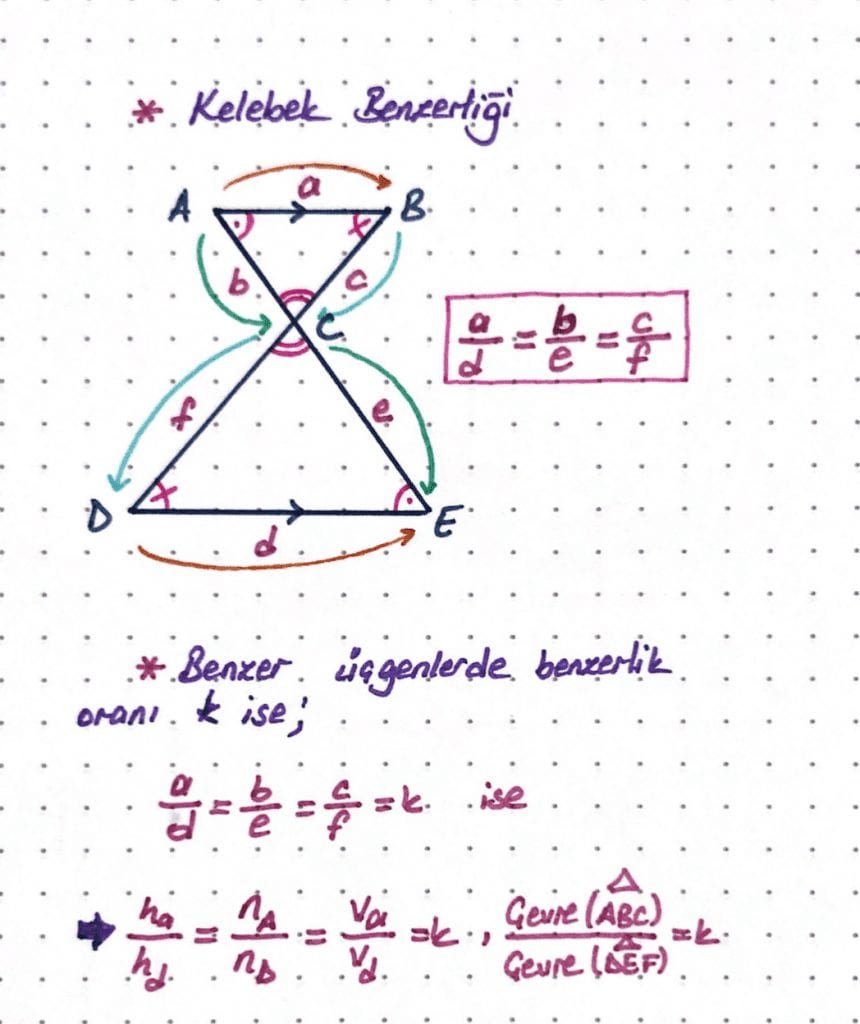 * Kelebek Benzerliği
a
A B
b c
C
a/d = b/e = c/f
f e
D E
d
* Benzer üçgenlerde benzerlik
oranı k ise;
a/d = b/e = c/f = k ise
➡ ha/hd = nA/nD = Va/Vd = k , Çevre (ABC)/Çevre (DEF) = k